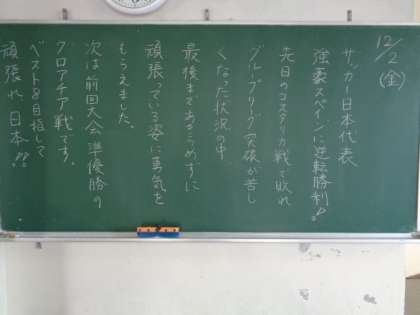 12/2(金)
サッカー日本代表
強豪スペインに逆転勝利!!
先日のコスタリカ戦で敗れ
グループリーグ突破が苦し
くなった状況の中
最後まであきらめずに
頑張っている姿に勇気を
もらえました。
次は前回大会準優勝の
クロアチア戦です。
ベスト8目指して
頑張れ日本!!!